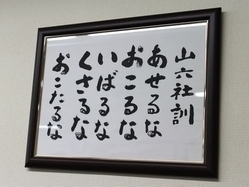 山六社訓
あせるな
おこるな
いばるな
くさるな
おこたるな